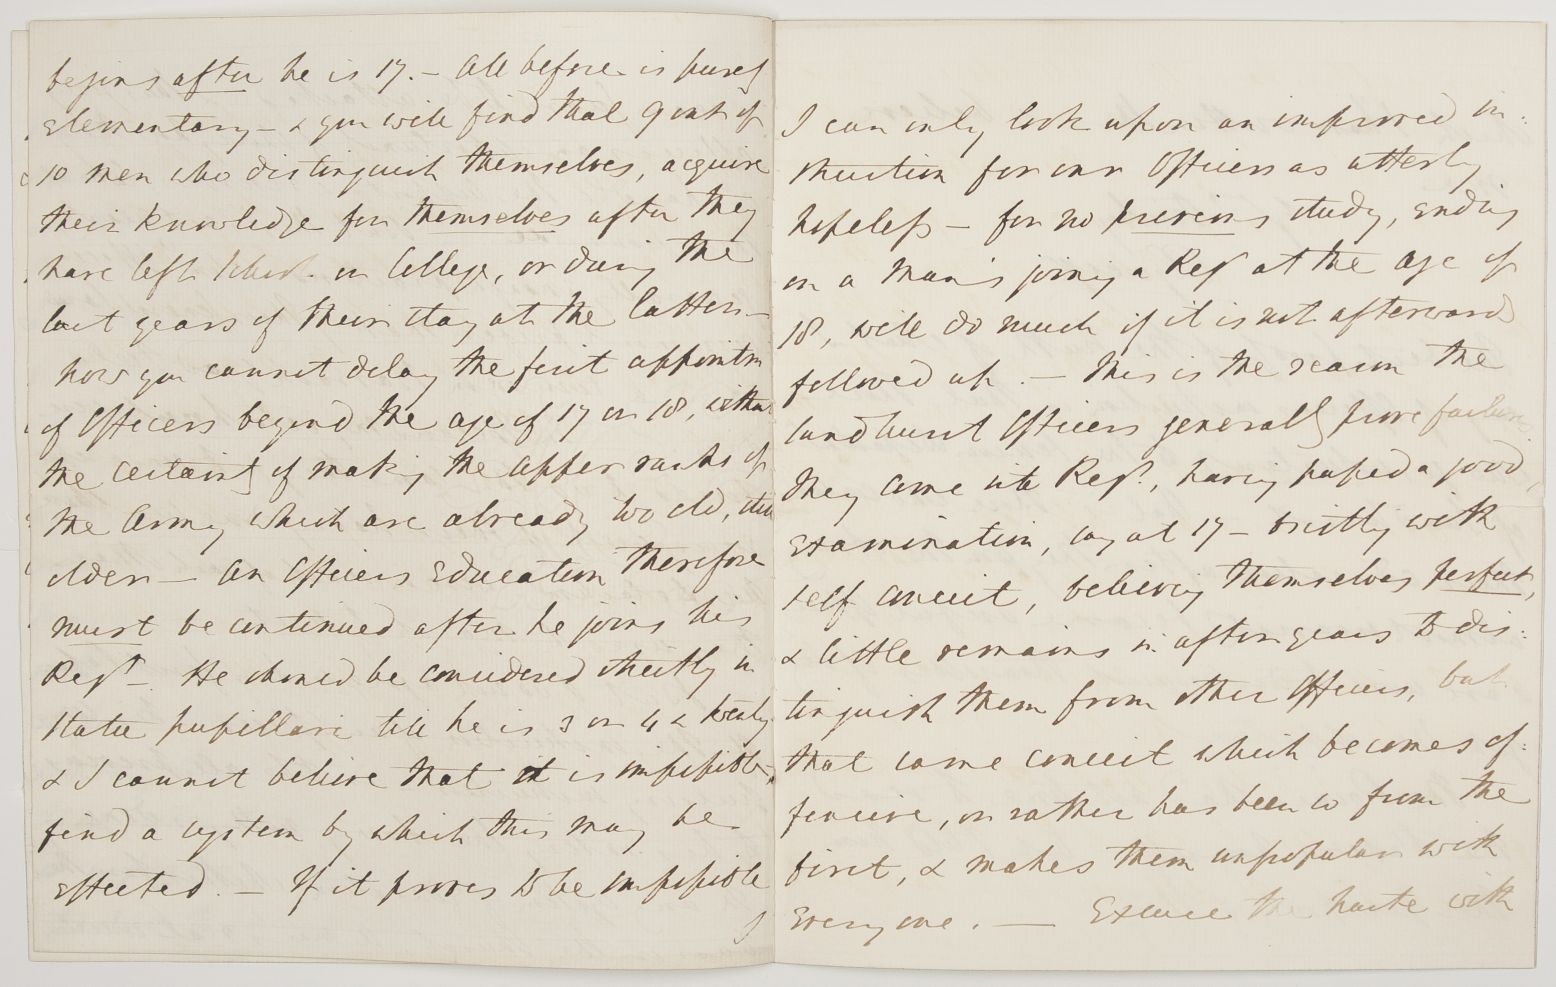 begins after he is 17. - All before is purely
elementary - & you will find that 9 out of
10 men who distinguish themselves, acquire
their knowledge for themselves after they
have left School or College, or during the
last years of their stay at the latter -
Now you cannot delay the first appointm
of Officers beyond the age of 17 or 18, witht
the certainty of making the upper ranks of
the Army which are already too old, still
older - An Officers Education therefore
must be continued after he joins his
Regt - He should be considered strictly in
Statu pupillari till he is 3 or 4 & twenty
& I cannot believe that it is impossible to
find a system by which this may be
effected. - If it proves to be impossible
I
I can only look upon an improved in:
struction for our Officers as utterly
hopeless - for no previous study, ending
on a Man's joining a Regt at the age of
18, will do much if it is not afterwards
followed up. - This is the reason the
Sandhurst Officers generally prove failures,
They come into Regts, having passed a good
Examination, say at 17 - bristling with
self conceit, believing themselves perfect,
& little remains in after years to dis:
tinguish them from other Officers, but
that same conceit which becomes of:
fensive, or rather has been so from the
first, & makes them unpopular with
Every one. - Excuse the haste with